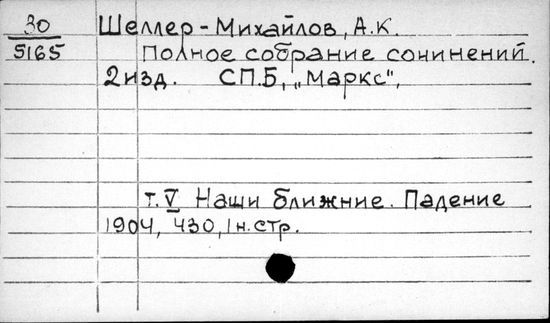 30
5165
Шеллер-Михайлов, А.К.
Полное собрание сочинений.
2 изд. СП.Б, „Маркс",
т. V Наши ближние. Падение
1904, 430, 1 н. стр.